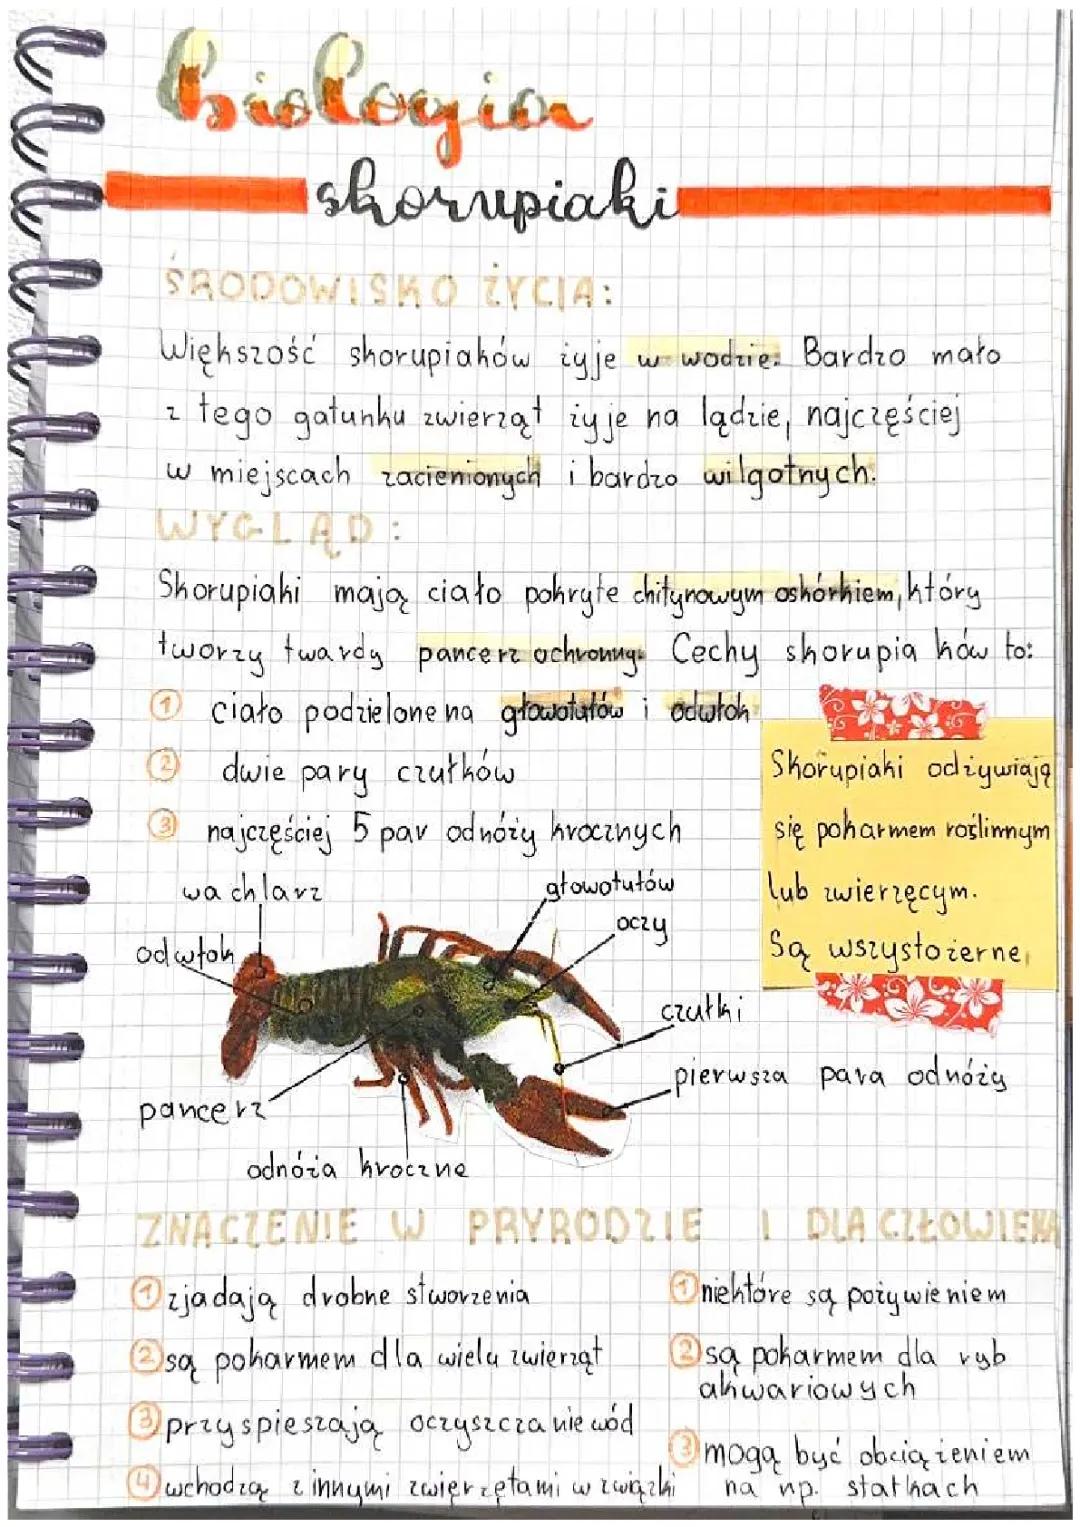 biologia
skorupiaki
ŚRODOWISKO ŻYCIA:
Większość skorupiaków żyje w wodzie. Bardzo mało
z tego gatunku zwierząt żyje na lądzie, najczęściej
w miejscach zacienionych i bardzo wilgotnych.
WYGLĄD:
Skorupiaki mają ciało pokryte chitynowym oskórkiem, który
tworzy twardy pancerz ochronny. Cechy skorupiaków to:
1 ciało podzielone na głowotułów i odwłok
2 dwie pary czułków
3 najczęściej 5 par odnóży krocznych
Skorupiaki odżywiają
się pokarmem roślinnym
lub zwierzęcym.
Są wszystożerne,
wachlarz
głowotułów
oczy
odwłok
czułki
pierwsza para odnóży
pancerz
odnóża kroczne
ZNACZENIE W PRYRODZIE I DLA CZŁOWIEKA
1 zjadają drobne stworzenia
2 są pokarmem dla wielu zwierząt
3 przyspieszają oczyszczanie wód
4 wchodzą z innymi zwierzętami w związki
1 niektóre są pożywieniem
2 są pokarmem dla ryb
akwariowych
3 mogą być obciążeniem
na np. statkach